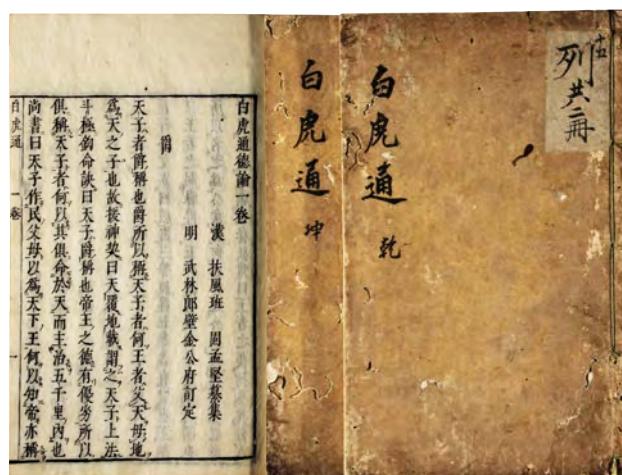 十五
列共二冊
白虎通 乾
白虎通 坤
白虎通德論一卷
漢 扶風班 固孟堅纂集
明 武林郎壁金公府訂定
爵
天子者爵稱也爵所以稱天子者何王者父天母地
爲天之子也故援神契曰天覆地載謂之天子上法
斗極鉤命訣曰天子爵稱也帝王之德有優劣所以
俱稱天子者何以其俱命於天而主治五千里內也
尚書曰天子作民父母以爲天下王何以知帝亦稱
白虎通 一卷 一